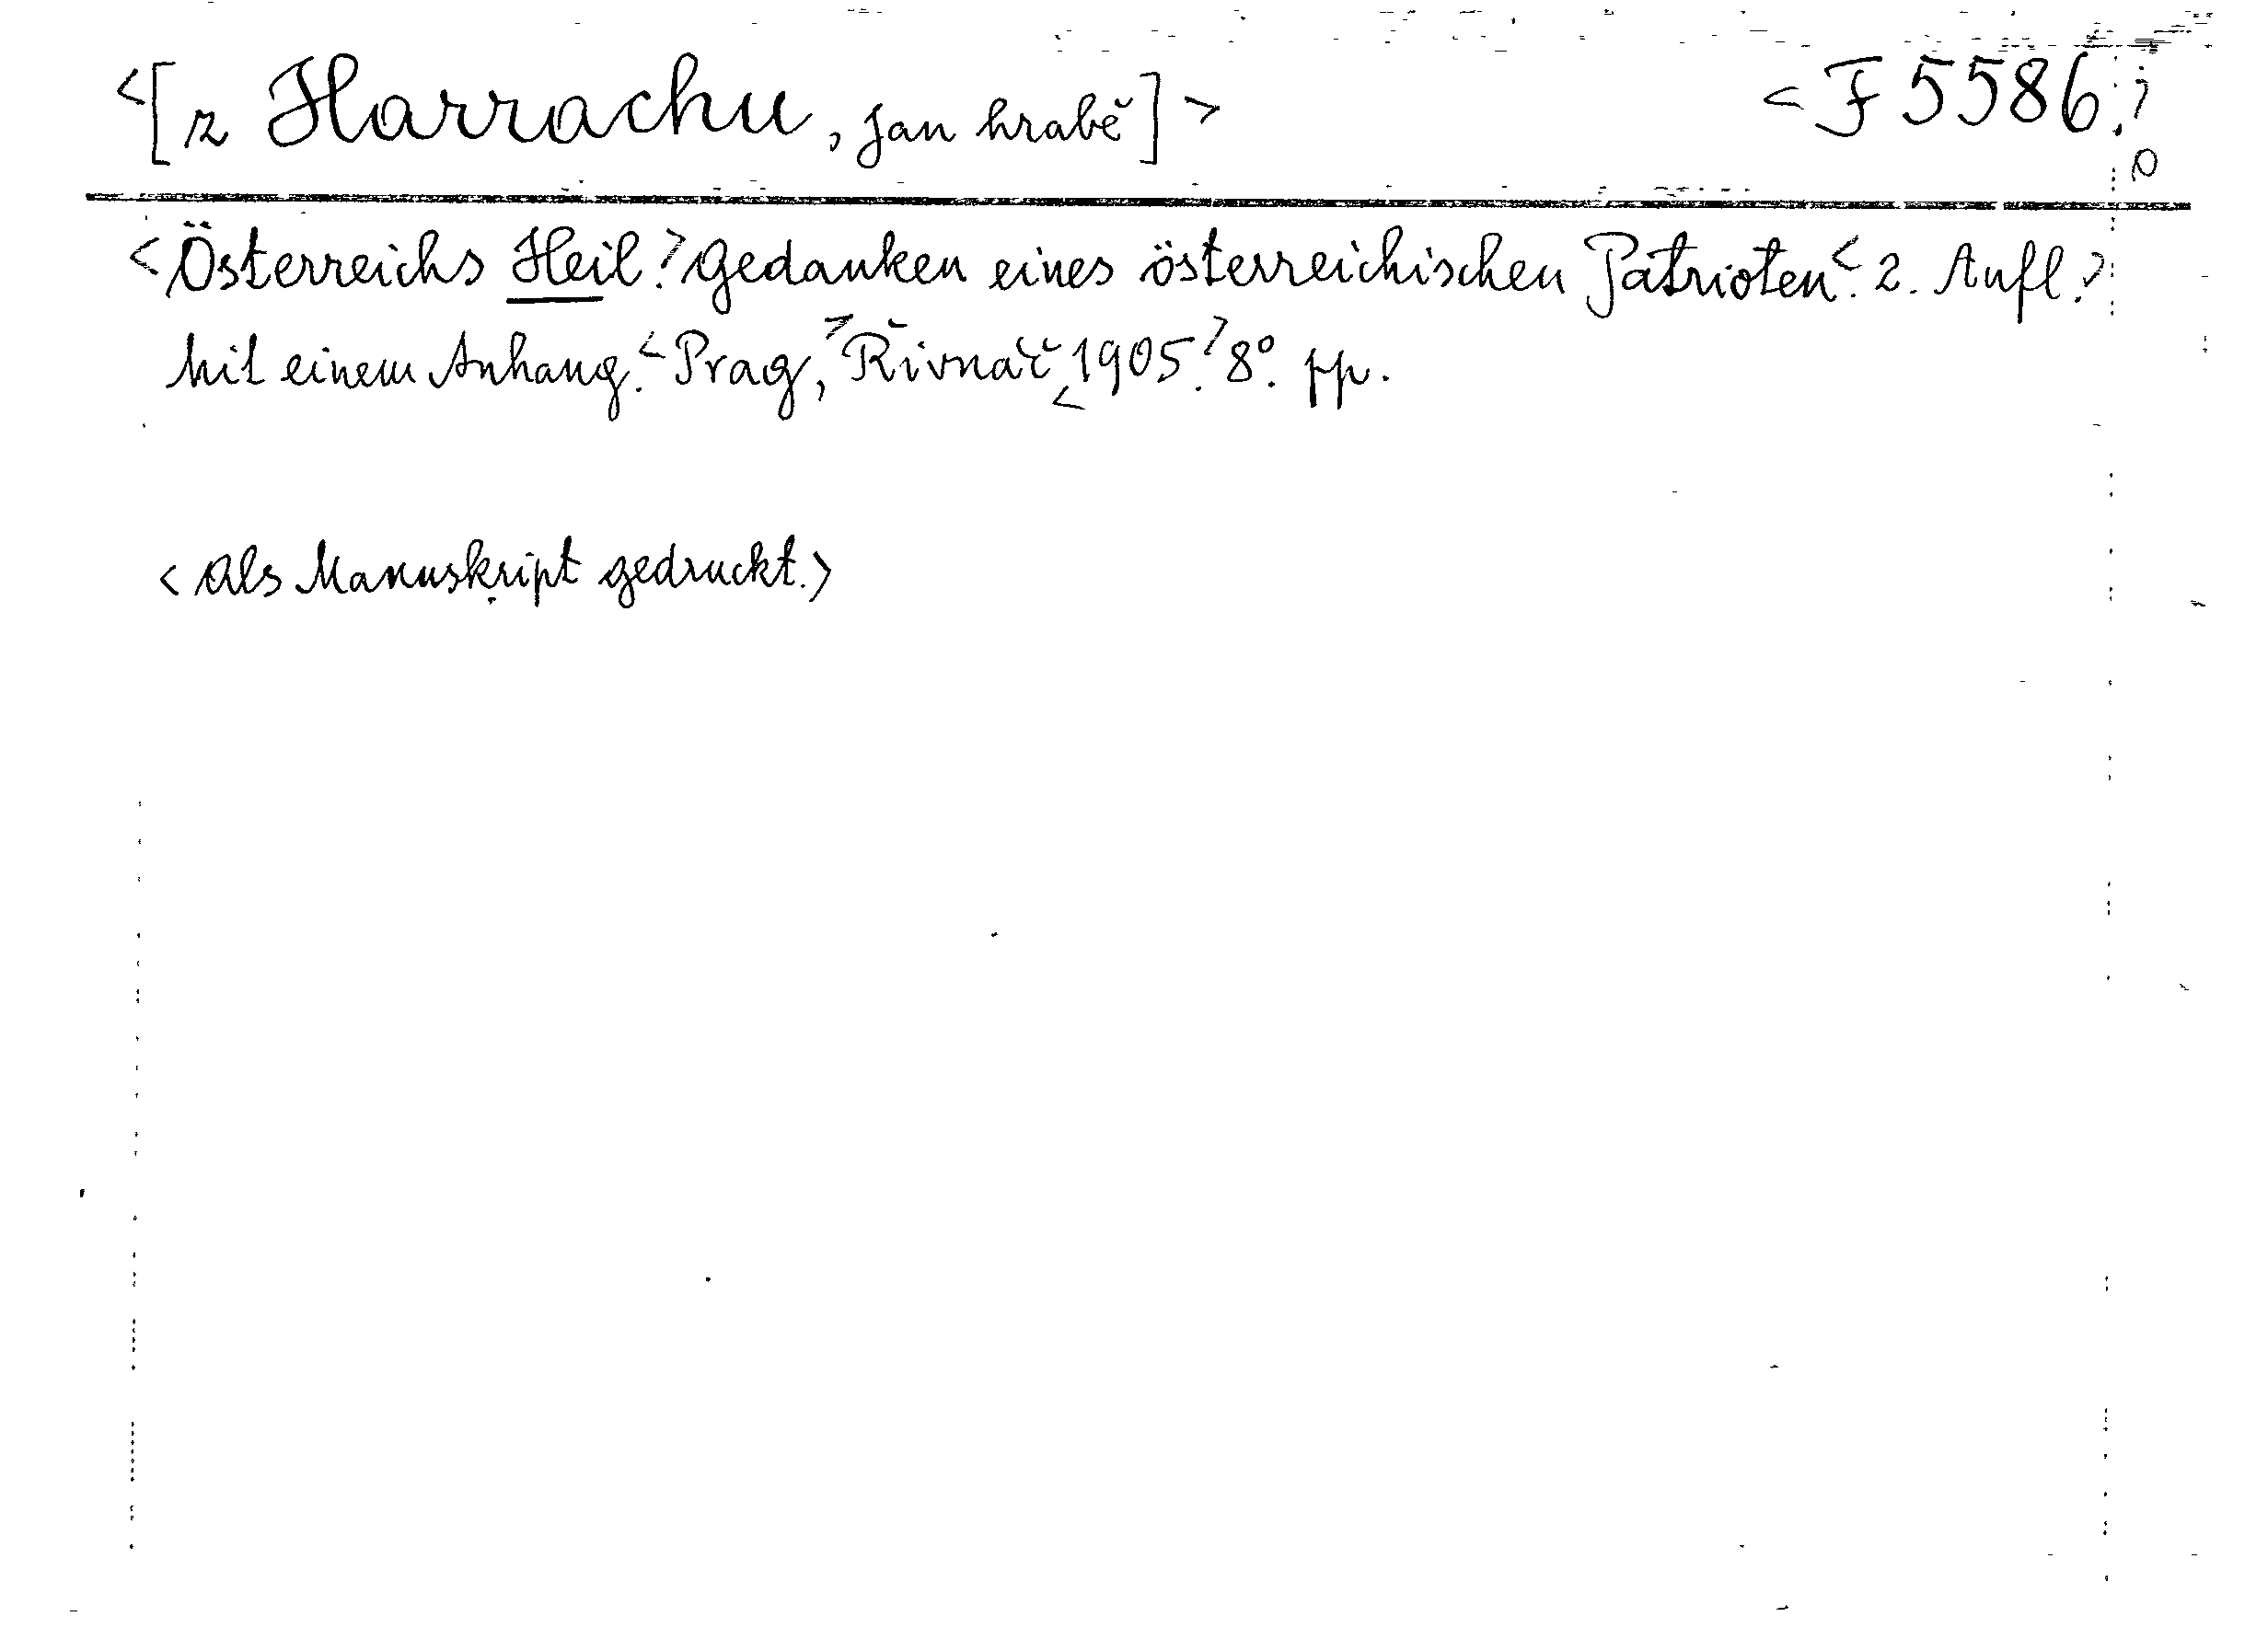 <[z Harrachu, Jan hrabě]> <F 5586.>
<Österreichs Heil.> Gedanken eines österreichischen Patrioten.< 2. Aufl.>
Mit einem Anhang.< Prag,> Řivnáč <1905.> 8°. pp.
<Als Manuskript gedruckt.>